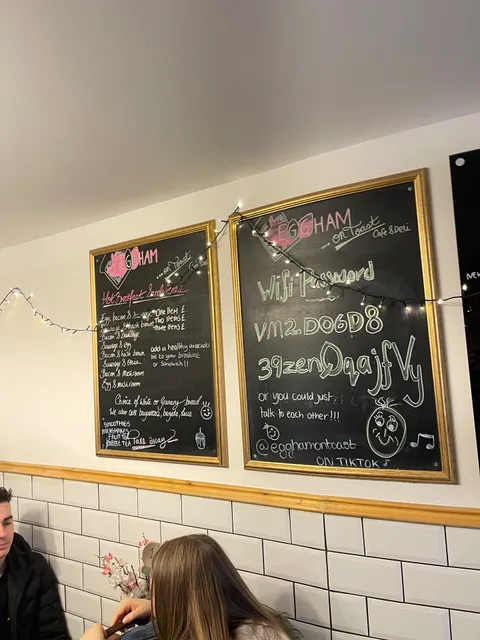 EGGHAM
...on Toast
Hot Breakfast Sandwiches
Egg, bacon &
Bacon & Sausage
Sausage & egg
Bacon & hash brown
Sausage &
Bacon & mushroom
Egg & mushroom
ONE ITEM £
TWO ITEMS £
THREE ITEMS £
add a healthy avocado
to your
or Sandwich!!
Choice of white or Granary bread
We also care
SMOOTHIES
MILKSHAKES
FRUIT TEA
BUBBLE TEA
Take away
EGGHAM
...on Toast
Cafe & Deli
Wifi Password
VM2DO6D8
39zenQqajfVy
or you could just
talk to each other!!!
@egghamontoast
ON TIKTOK